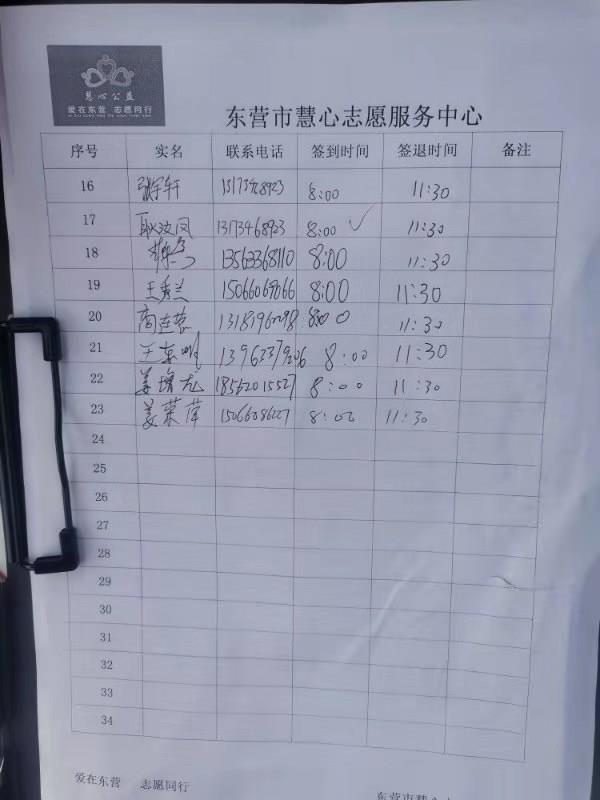 慧心公益
爱在东营 志愿同行
东营市慧心志愿服务中心
序号 实名 联系电话 签到时间 签退时间 备注
16 张宇轩 8:00 11:30
17 耿汝凤 13173468923 8:00 ✓ 11:30
18 13563368110 8:00 11:30
19 王秀兰 15066069066 8:00 11:30
20 商连荣 8:00 11:30
21 王东明 8:00 11:30
22 姜增龙 18562015527 8:00 11:30
23 姜荣萍 15066086227 8:00 11:30
24
25
26
27
28
29
30
31
32
33
34
爱在东营 志愿同行
东营市慧心